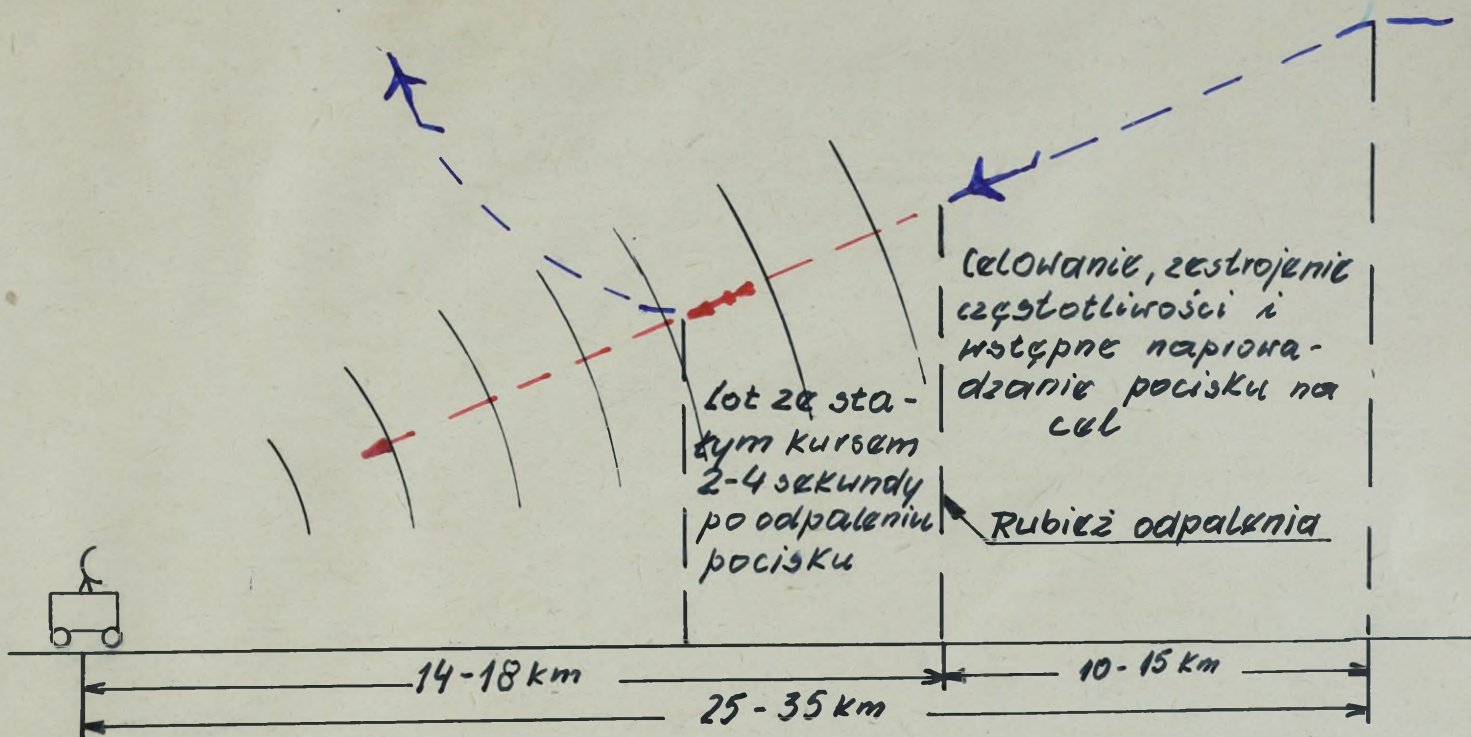 Celowanie, zestrojenie
częstotliwości i
wstępne naprowa-
dzanie pocisku na
cel
Lot ze sta-
łym kursem
2-4 sekundy
po odpaleniu
pocisku
Rubież odpalenia
14-18 km
10-15 km
25-35 km